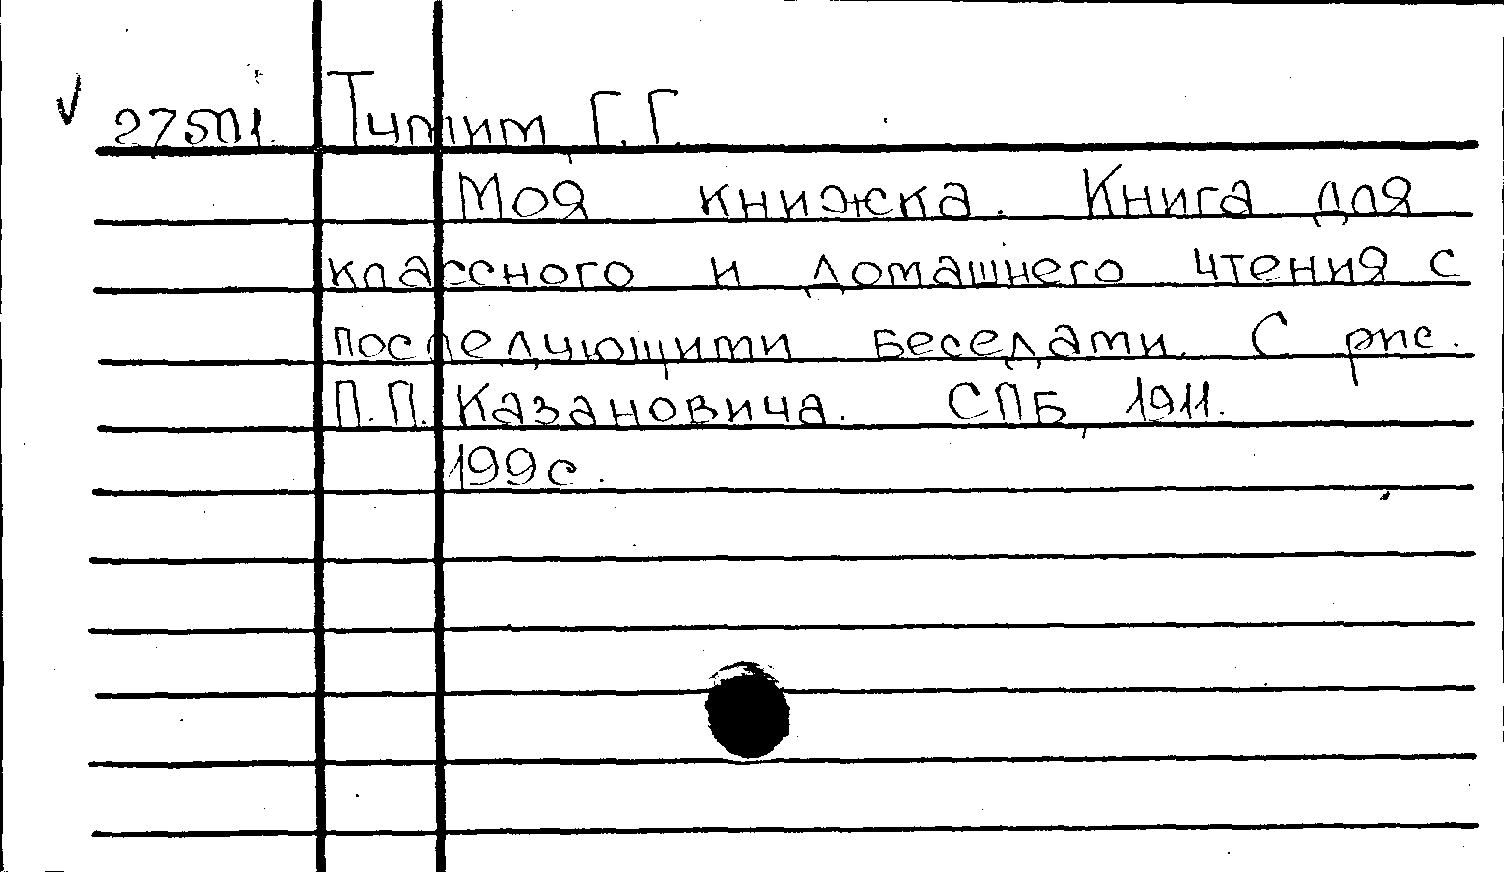 √ 27501. Тумим, Г.Г.
Моя книжка. Книга для
классного и домашнего чтения с
последующими беседами. С рис.
П.П. Казановича. СПБ, 1911.
199с.